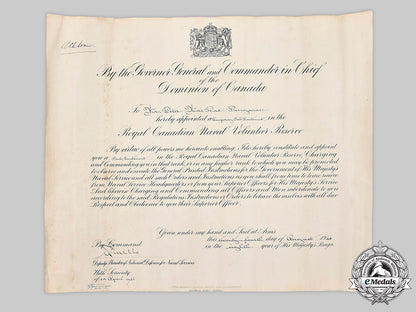 Athlone
By the Governor General and Commander in Chief
of the
Dominion of Canada
To
hereby appointed a Temporary Sub-Lieutenant in the
Royal Canadian Naval Volunteer Reserve
By virtue of all powers me hereunto enabling I do hereby constitute and appoint
you a Sub-Lieutenant in the Royal Canadian Naval Volunteer Reserve, Charging
and Commanding you in that rank or in any higher rank to which you may be promoted
to observe and execute the General Printed Instructions for the Government of His Majesty's
Naval Service and all such Orders and Instructions as you shall from time to time receive
from Naval Service Headquarters or from your Superior Officers for His Majesty's Service
And likewise Charging all Officers and Men subordinate to you
according to the said Regulations Instructions or Orders to behave themselves with all due
Respect and Obedience to you their Superior Officer.
Given under my hand and Seal at Arms
this twenty-fourth day of August 19
By Command in the eighth year of His Majesty's Reign.
Deputy Minister of National Defence for Naval Services
With Seniority
of
eMedals